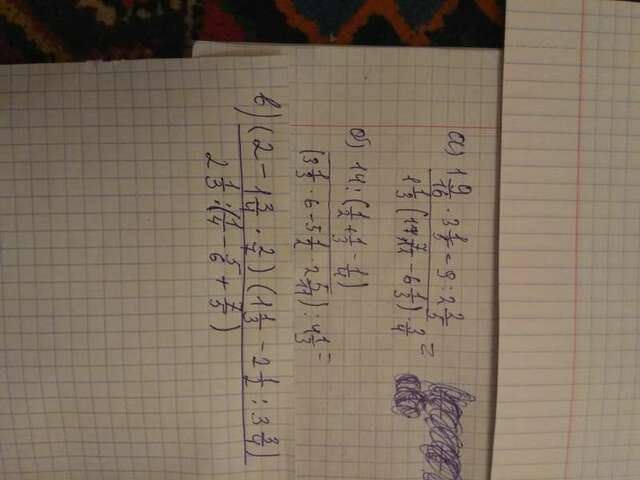 а) 1 9/16 · 3 1/5 - 9 : 2 2/5
1 1/3 (17 7/12 - 6 1/3) · 3/4 =
б) 14 : (1/2 + 1/3 - 1/4)
(3 1/3 · 6 - 5 1/2 · 2 5/11) : 4 1/3 =
в) (2 - 1 3/4 · 2/7) (1 1/3 - 2 1/2 : 3 3/4)
2 1/3 : (1/4 - 5/6 + 7/5)